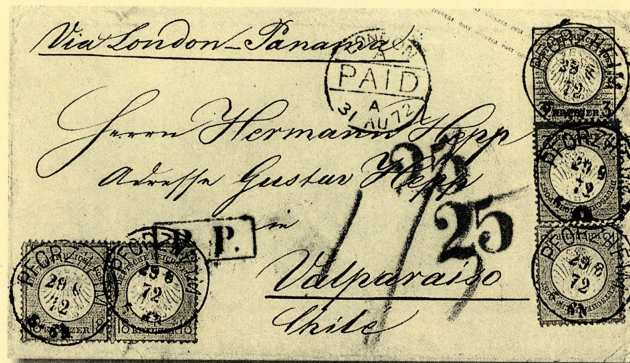 Via London-Panama
LONDON
PAID
A
31 AU 72
PFORZHEIM
29 8
72
Herrn Hermann Hepp
Adresse Gustav Hepp
in
Valparaiso
Chile
25
25
P. P.
PFORZHEIM
29 8
72
PFORZHEIM
29 8
72
PFORZHEIM
29 8
72
PFORZHEIM
29 8
72
18 KREUZER 18
18 KREUZER 18